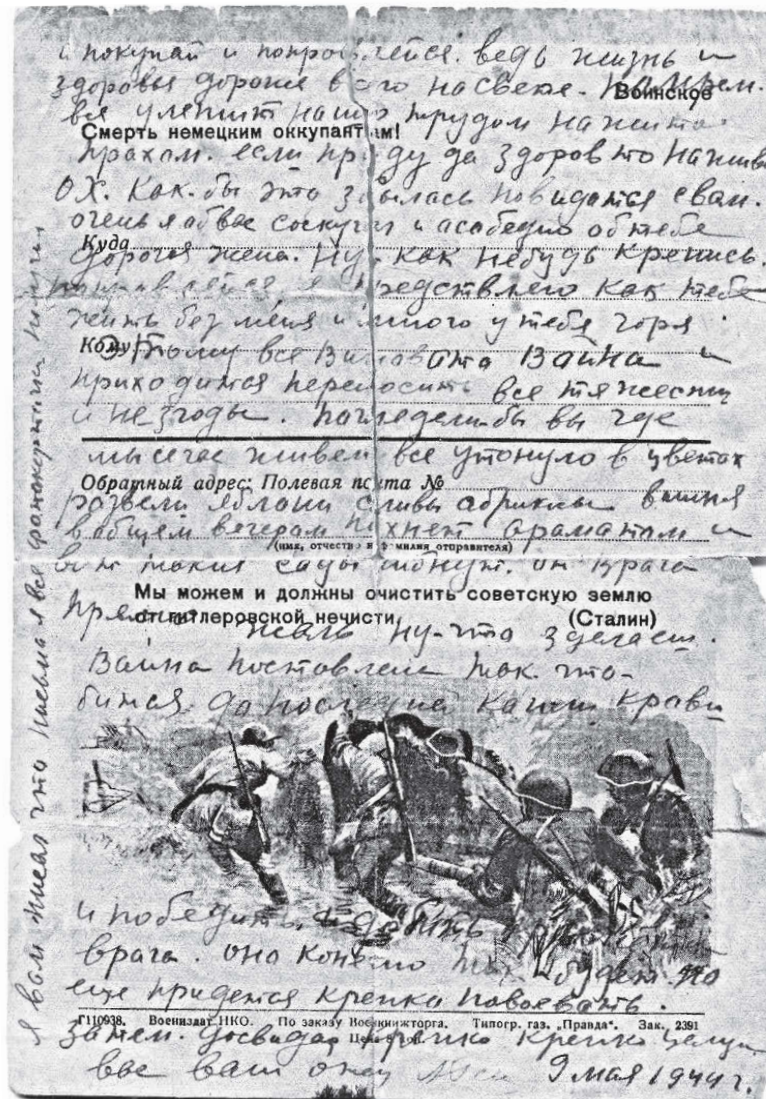 и покупай и попровлейся. ведь жизнь и
здоровья дороже всего на свете.
Воинское
вся улепит нашо трудом нажито
Смерть немецким оккупантам!
прахом. если приду да здоров то нажив
ох. Как бы это збылась повидатся с вам.
очень я об вас соскучал и асабедно об тебе
Куда
дорогая жена. Ну как небудь крепись.
я предствлею как тебе
жить без меня и много у тебя горя
Кому
Этому все виновата Вайна и
приходится переносить все тяжести
и незгоды. погледелибы вы где
мы сечас живем все утонуло в цветах
Обратный адрес: Полевая почта №
розвели яблони сливы абрикосы вишня
вобщем вечерам пахнет араматам и
(имя, отчество и фамилия отправителя)
вот такия сады от врага
Мы можем и должны очистить советскую землю
от гитлеровской нечисти. (Сталин)
прямо жаль ну-что зделаеш.
Вайна поставлена так что-
битса до последней капли крави
и победить и добить
врага. оно конечно так и будет но
еще придется крепка повоевать.
Г110938. Воениздат НКО. По заказу Военкнижторга. Типогр. газ. „Правда". Зак. 2391
затем. досвидан крепко крепко целую
вас ваш отец 9 мая 1944 г.
я вам писал что письма я все